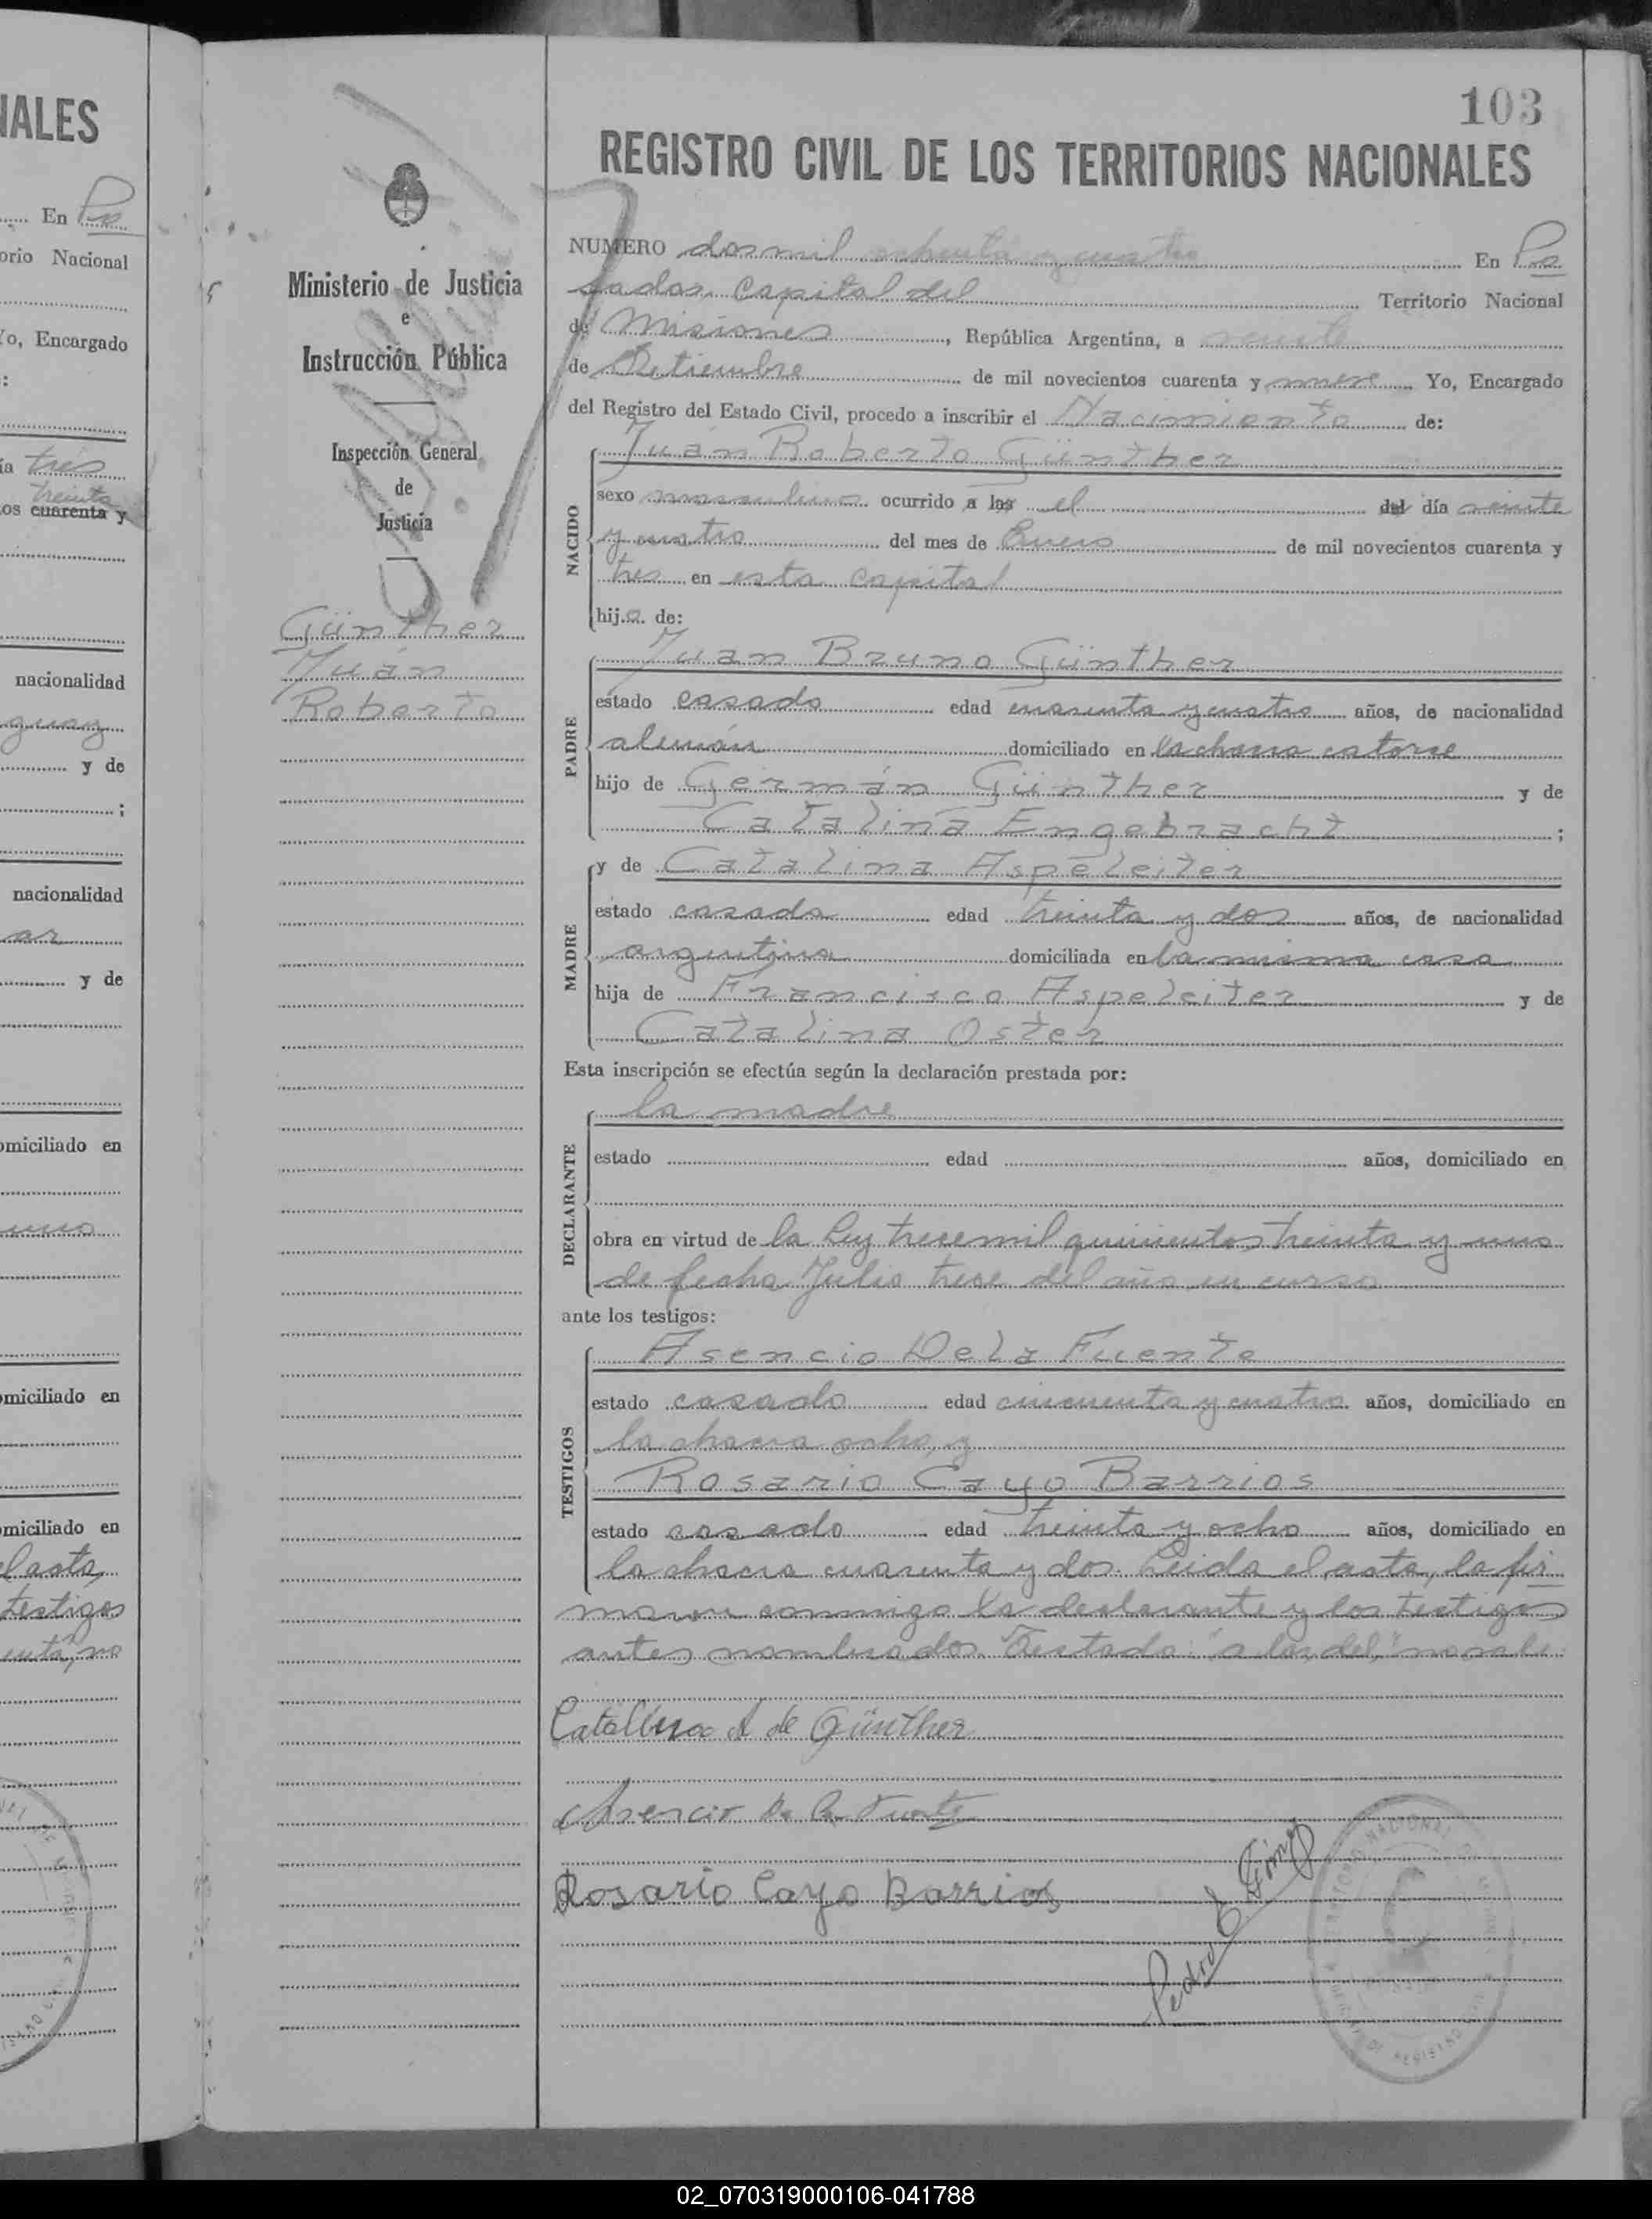 103
REGISTRO CIVIL DE LOS TERRITORIOS NACIONALES
NUMERO dos mil ochenta y cuatro En Po
sadas Capital del Territorio Nacional
de Misiones, República Argentina, a veinte
de Setiembre de mil novecientos cuarenta y nueve Yo, Encargado
del Registro del Estado Civil, procedo a inscribir el Nacimiento de:
NACIDO
Juán Roberto Günther
sexo masculino ocurrido a las el del día veinte
y cuatro del mes de Enero de mil novecientos cuarenta y
tres en esta capital
hijo de:
PADRE
Juan Bruno Günther
estado casado edad cuarenta y cuatro años, de nacionalidad
alemán domiciliado en la chacra catorce
hijo de Germán Günther y de
Catalina Engebracht ;
MADRE
y de Catalina Aspeleiter
estado casada edad treinta y dos años, de nacionalidad
argentina domiciliada en la misma casa
hija de Francisco Aspeleiter y de
Catalina Oster
Esta inscripción se efectúa según la declaración prestada por:
DECLARANTE
la madre
estado edad años, domiciliado en
obra en virtud de la Ley trece mil quinientos treinta y uno
de fecha Julio trece del año en curso
ante los testigos:
TESTIGOS
Asencio De la Fuente
estado casado edad cincuenta y cuatro años, domiciliado en
la chacra ocho, y
Rosario Cayo Barrios
estado casado edad treinta y ocho años, domiciliado en
la chacra cuarenta y dos. Leida el acta, la fir
maron conmigo la declarante y los testigos
antes nombrados. Testado: "a las, del," no vale.
Catalina A de Günther
Asencio De la Fuente
Rosario Cayo Barrios
Ministerio de Justicia
e
Instrucción Pública
Inspección General
de
Justicia
Günther
Juán
Roberto
NALES
En Po
orio Nacional
Yo, Encargado
:
ía tres
treinta
os cuarenta y
nacionalidad
y de
;
nacionalidad
y de
omiciliado en
omiciliado en
omiciliado en
el acta,
testigos
02_070319000106-041788